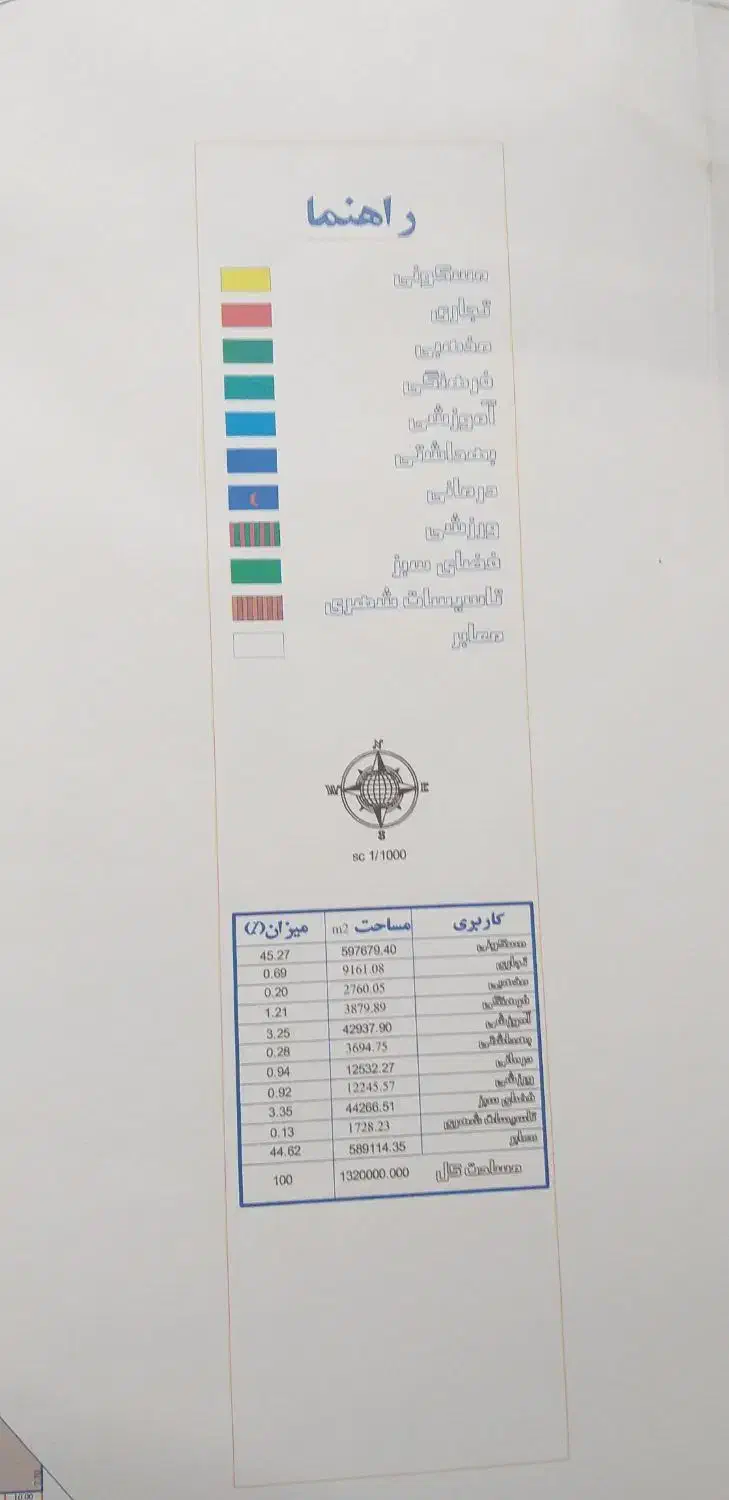 راهنما
مسکونی
تجاری
مذهبی
فرهنگی
آموزشی
بهداشتی
درمانی
ورزشی
فضای سبز
تاسیسات شهری
معابر
N
W E
S
sc 1/1000
کاربری مساحت m2 میزان(٪)
مسکونی 597679.40 45.27
تجاری 9161.08 0.69
مذهبی 2760.05 0.20
فرهنگی 3879.89 1.21
آموزشی 42937.90 3.25
بهداشتی 3694.75 0.28
درمانی 12532.27 0.94
ورزشی 12245.57 0.92
فضای سبز 44266.51 3.35
تاسیسات شهری 1728.23 0.13
معابر 589114.35 44.62
مساحت کل 1320000.000 100
10.00